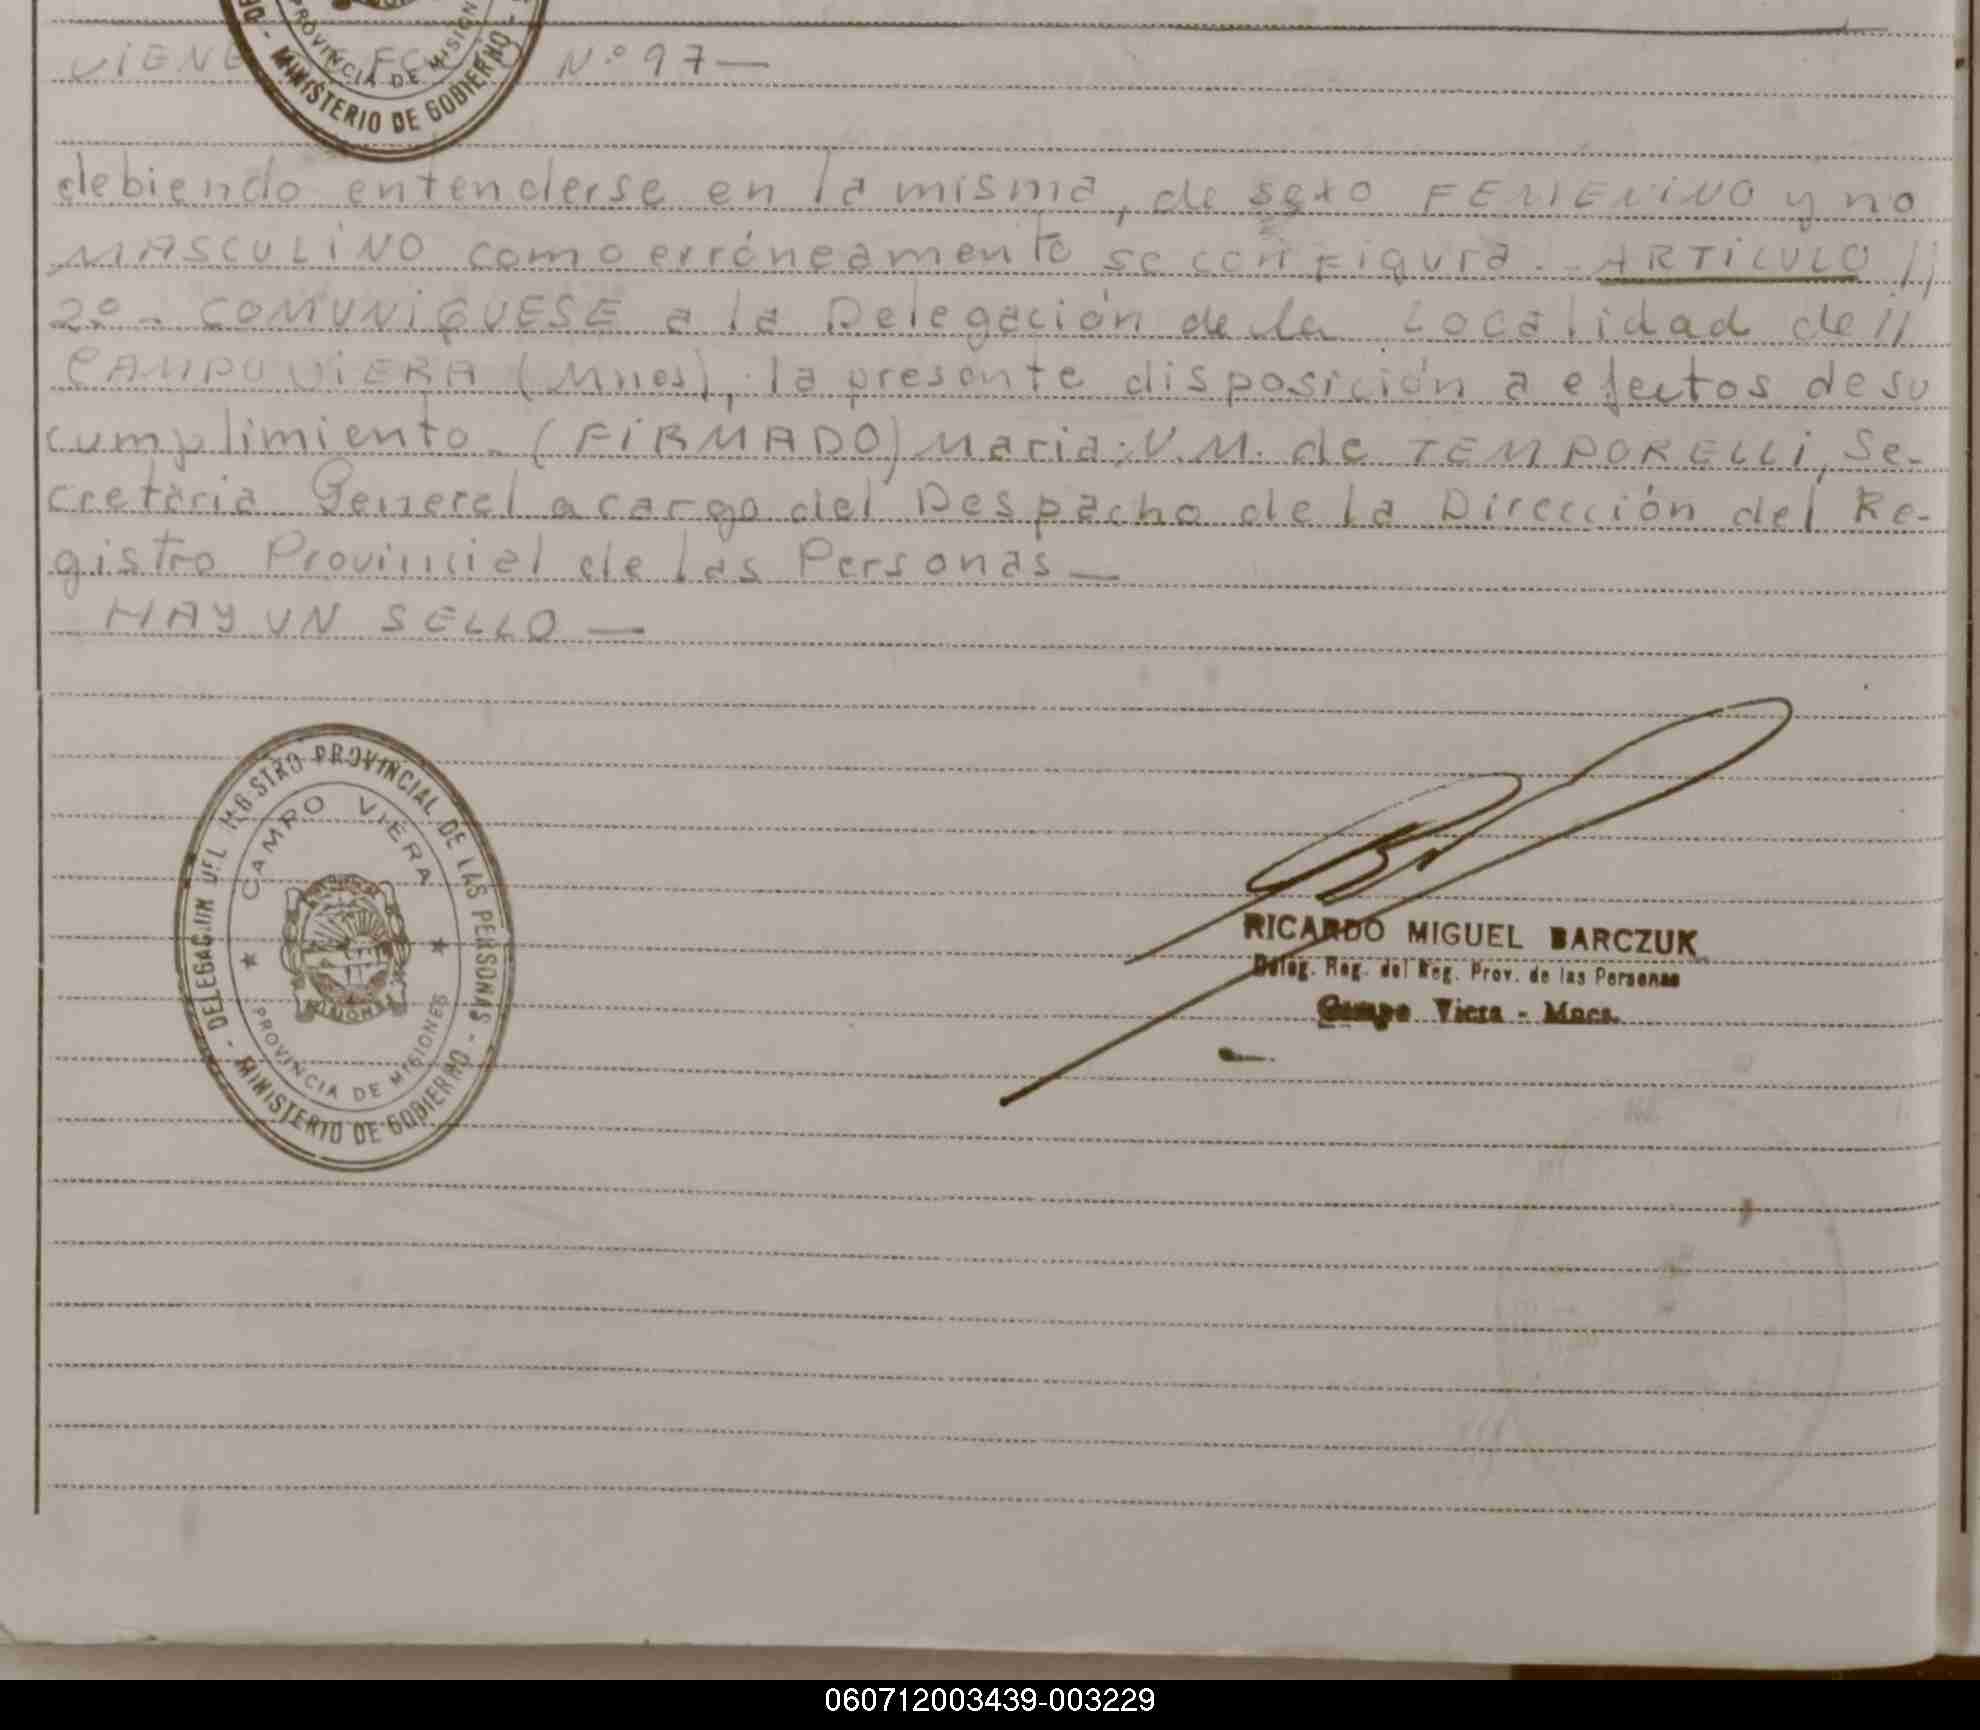 PROVINCIA DE MISION
- MINISTERIO DE GOBIERNO -
VIENE FO N.º 97—
debiendo entenderse en la misma, de sexo FEMENINO y no
MASCULINO como erróneamente se configura. ARTICULO //
2º - COMUNIQUESE a la Delegación de la Localidad de //
CAMPO VIERA (Mnes), la presente disposición a efectos de su
cumplimiento - (FIRMADO) Maria. V. M. de TEMPORELLI, Se-
cretaria General a cargo del Despacho de la Dirección del Re-
gistro Provincial de las Personas —
HAY UN SELLO —
DELEGACION DEL REGISTRO PROVINCIAL DE LAS PERSONAS - MINISTERIO DE GOBIERNO -
CAMPO VIERA
MISIONES
PROVINCIA DE MISIONES
RICARDO MIGUEL BARCZUK
Deleg. Reg. del Reg. Prov. de las Personas
Campo Viera - Mnes.
060712003439-003229